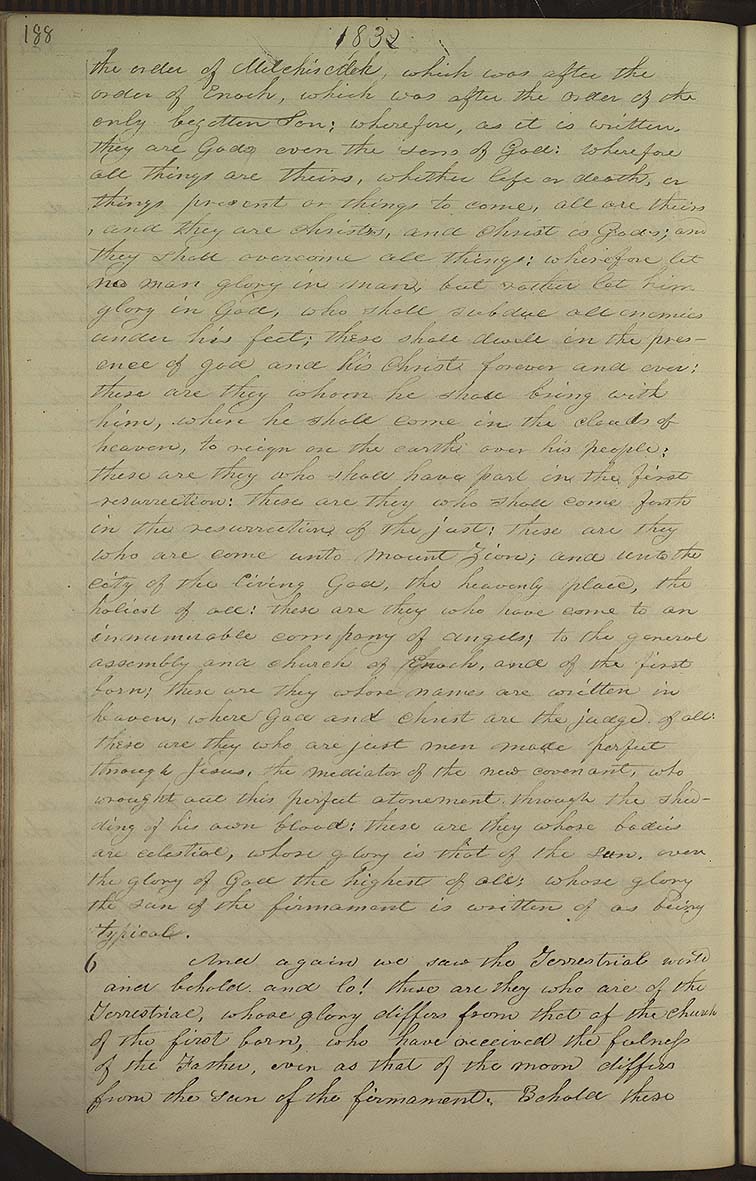 188
1832
the order of Melchisedek, which was after the
order of Enoch, which was after the order of the
only begotten Son; wherefore, as it is written,
they are Gods even the sons of God: wherefore
all things are theirs, whether life or death, or
things present or things to come, all are theirs
, and they are Christs, and Christ is Gods; and
they shall overcome all things: wherefore let
no man glory in man, but rather let him
glory in God, who shall subdue all enemies
under his feet; these shall dwell in the pres-
ence of god and his Christ forever and ever:
these are they whom he shall bring with
him, when he shall come in the clouds of
heaven, to reign on the earth over his people;
these are they who shall have part in the first
resurrection: these are they who shall come forth
in the resurrection of the just: these are they
who are come unto Mount Zion; and unto the
city of the living God, the heavenly place, the
holiest of all: these are they who have come to an
innumerable company of angels; to the general
assembly and church of Enoch, and of the first
born; these are they whose names are written in
heaven, where God and Christ are the judge of all:
these are they who are just men made perfect
through Jesus, the mediator of the new covenant, who
wrought out this perfect atonement through the shed-
ding of his own blood: these are they whose bodies
are celestial, whose glory is that of the sun, even
the glory of God the highest of all; whose glory
the sun of the firmament is written of as being
typical.
6 And again we saw the Terrestrial world
and behold and lo! these are they who are of the
Terrestrial, whose glory differs from that of the church
of the first born, who have received the fulness
of the Father, even as that of the moon differs
from the sun of the firmament. Behold these